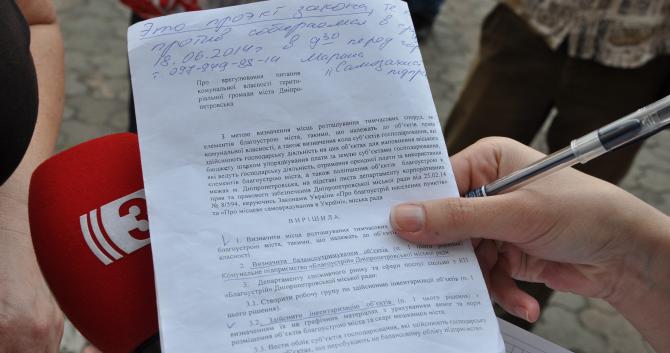 Это проэкт закона, те
против собираемся в
18.06.2014г в 9 30 перед
т. 097-949-98-14 Марина
"Самозахист
Про врегулювання питання
комунальної власності терито-
ріальної громади міста Дніпро-
петровська
З метою визначення місць розташування тимчасових споруд, м
елементів благоустрою міста, такими, що належать до об'єктів права
комунальної власності, а також визначення кола суб'єктів господарювання, які
здійснюють господарську діяльність на цих об'єктах для наповнення міського
бюджету шляхом упорядкування плати за землю суб'єктами господарювання,
які ведуть господарську діяльність, отримання орендної плати за використання
елементів благоустрою, а також поліпшення об'єктів благоустрою в
межах м. Дніпропетровська, на підставі листа департаменту корпоративних
прав та правового забезпечення Дніпропетровської міської ради від 25.02.14
№ 8/594, керуючись Законами України «Про благоустрій населених пунктів»
та «Про місцеве самоврядування в Україні», міська рада
ВИРІШИЛА:
1. Визначити місця розташування тимчасових
благоустрою міста, такими, що належать до об'єк
власності.
2. Визначити балансоутримувачем об'єктів (п. 1 цього рішення)
Комунальне підприємство «Благоустрій» Дніпропетровської міської ради.
3. Департаменту споживчого ринку та сфери послуг спільно з КП
«Благоустрій» Дніпропетровської міської ради:
3.1. Створити робочу групу по здійсненню інвентаризації об'єктів (п. 1
цього рішення).
3.2. Здійснити інвентаризацію об'єктів (п. 1 цього рішення) з
визначенням їх на графічних матеріалах з урахуванням вимог та норм
розміщення об'єктів благоустрою міста та схем межування міста.
3.3. Вести облік суб'єктів господарювання, які здійснюють господарську
що перебувають на балансовому обліку підприємство.